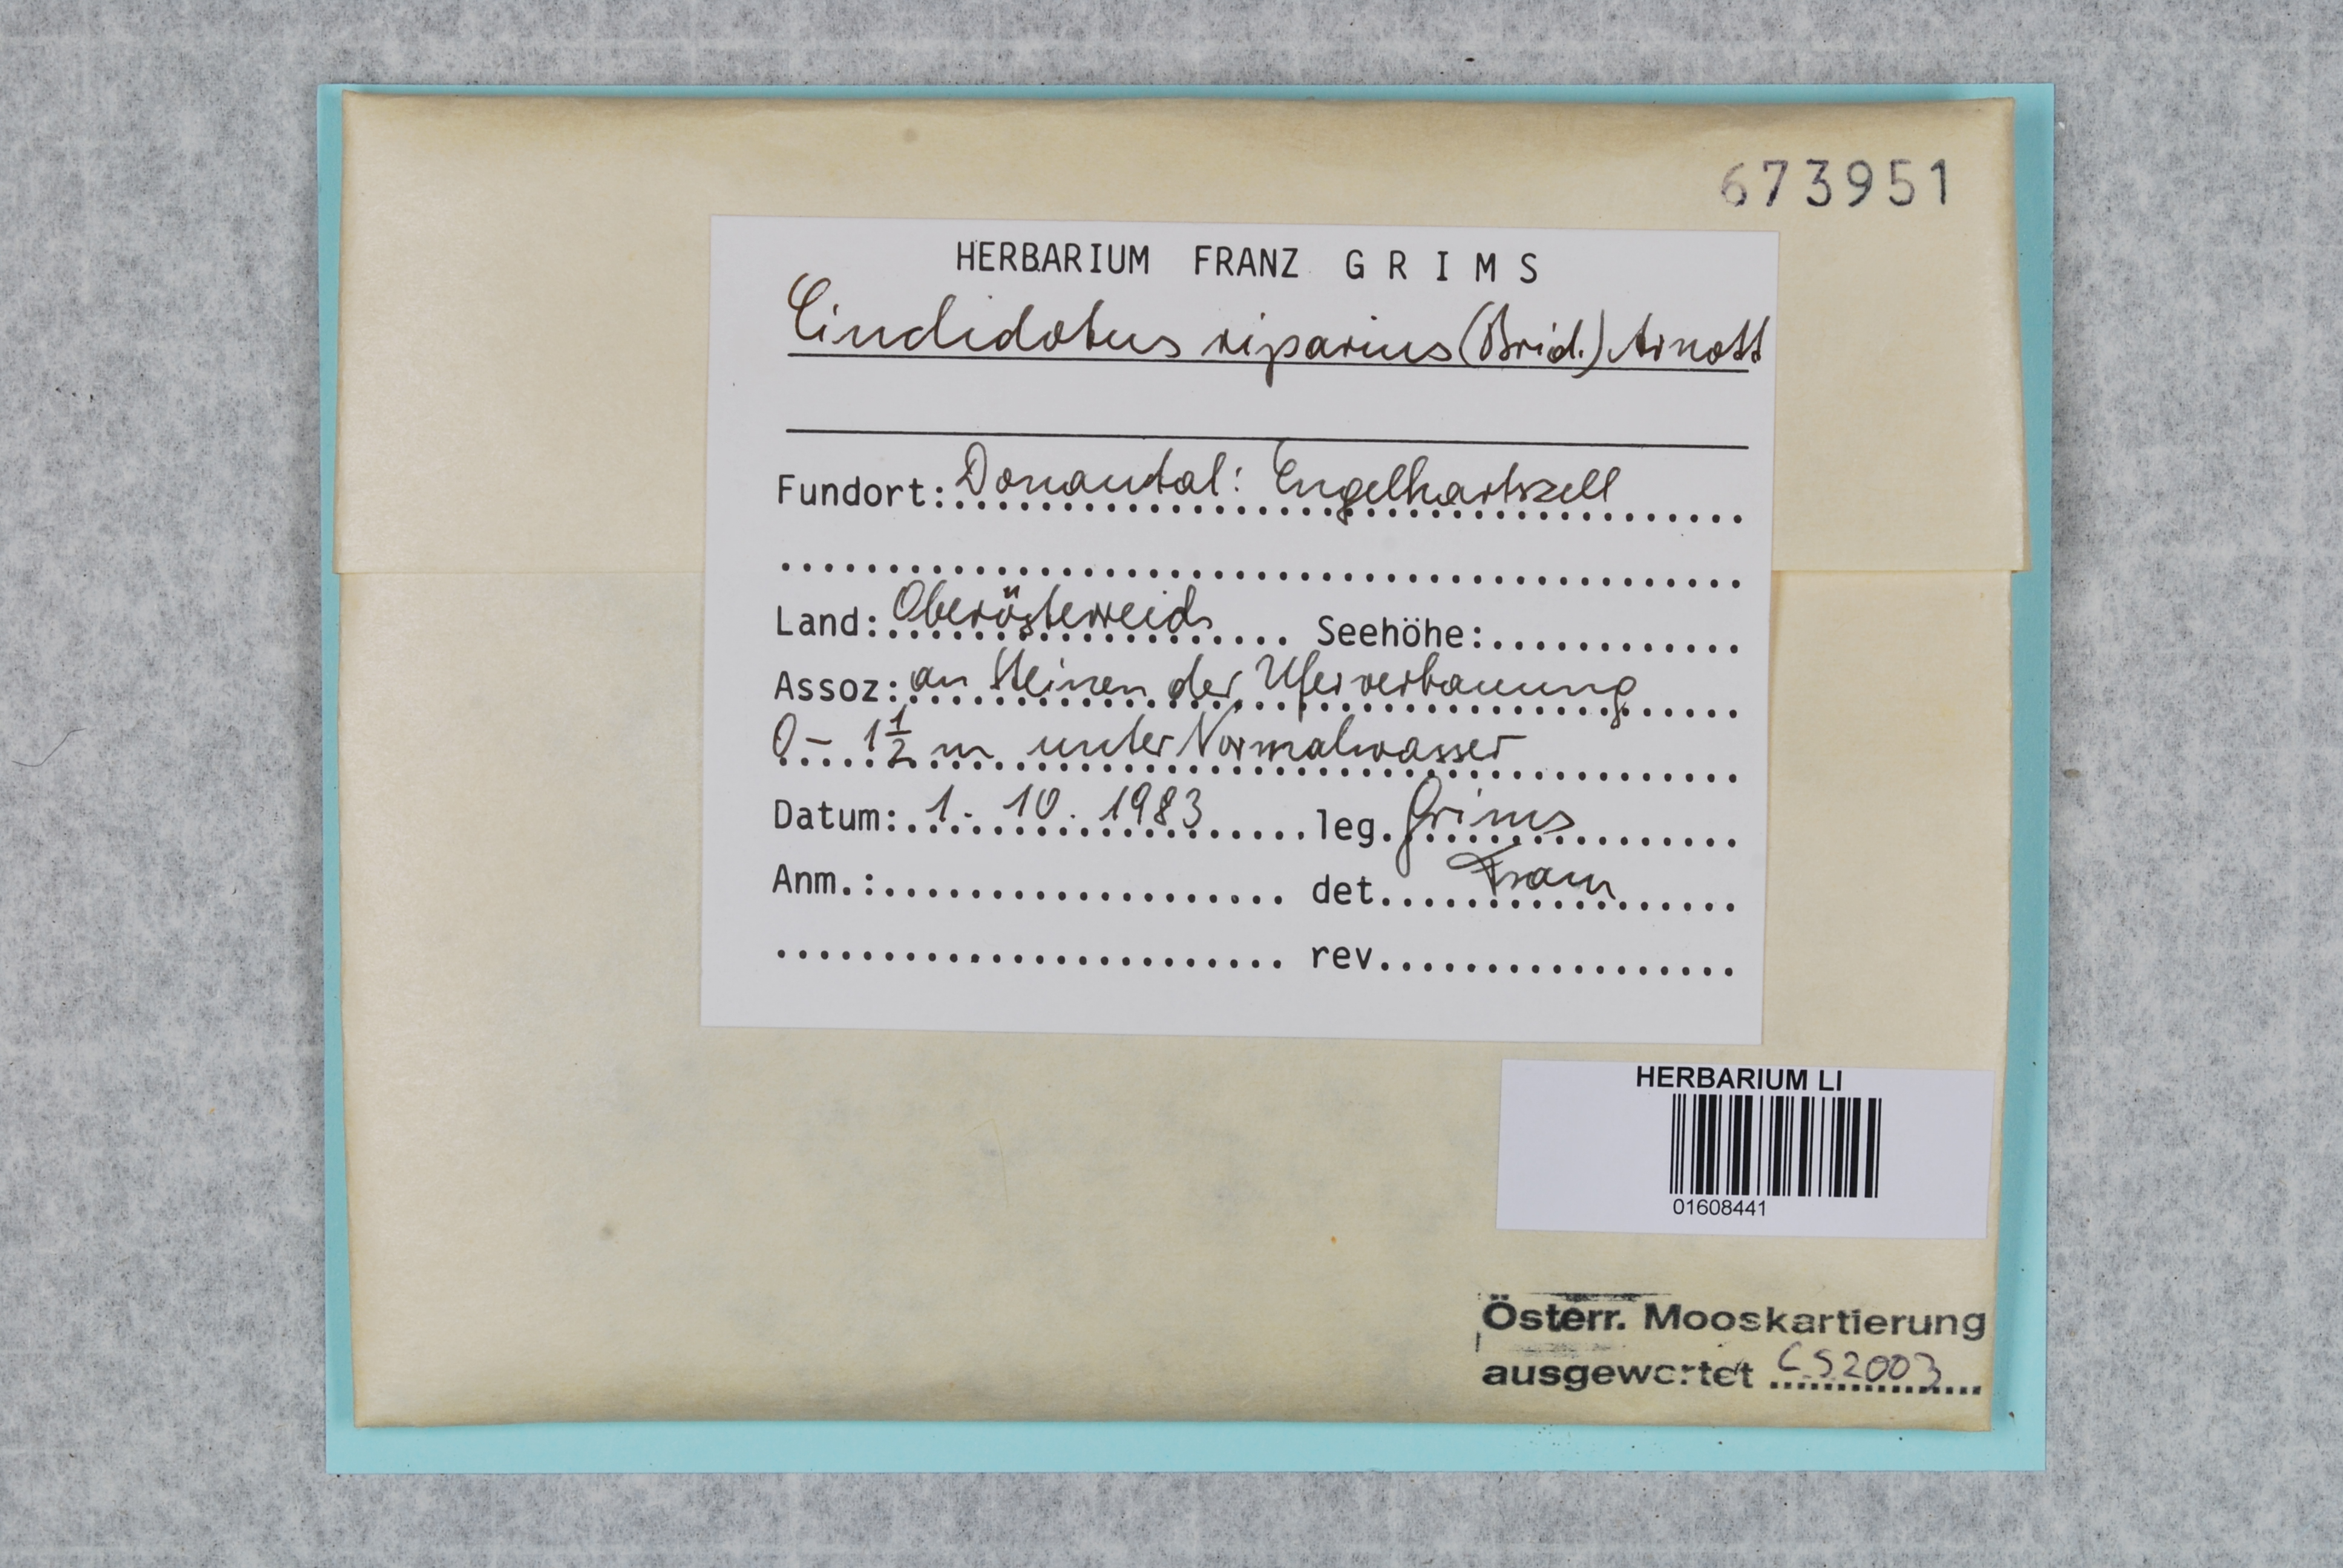 673951
HERBARIUM FRANZ GRIMS
Cinclidotus riparius (Brid.) Arnott
Fundort: Donautal: Engelhartszell
Land: Oberösterreich Seehöhe:
Assoz: an Steinen der Uferverbauung
0 – 1 1/2 m unter Normalwasser
Datum: 1. 10. 1983 leg. Grims
Anm.: det.
rev.
HERBARIUM LI
01608441
Österr. Mooskartierung
ausgewertet CS2003